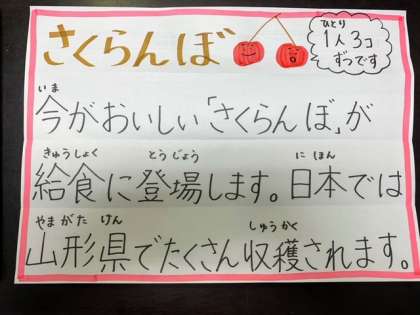 さくらんぼ
ひとり
1人3コ
ずつです
いま
今がおいしい「さくらんぼ」が
きゅうしょく とうじょう にほん
給食に登場します。日本では
やまがた けん しゅうかく
山形県でたくさん収穫されます。